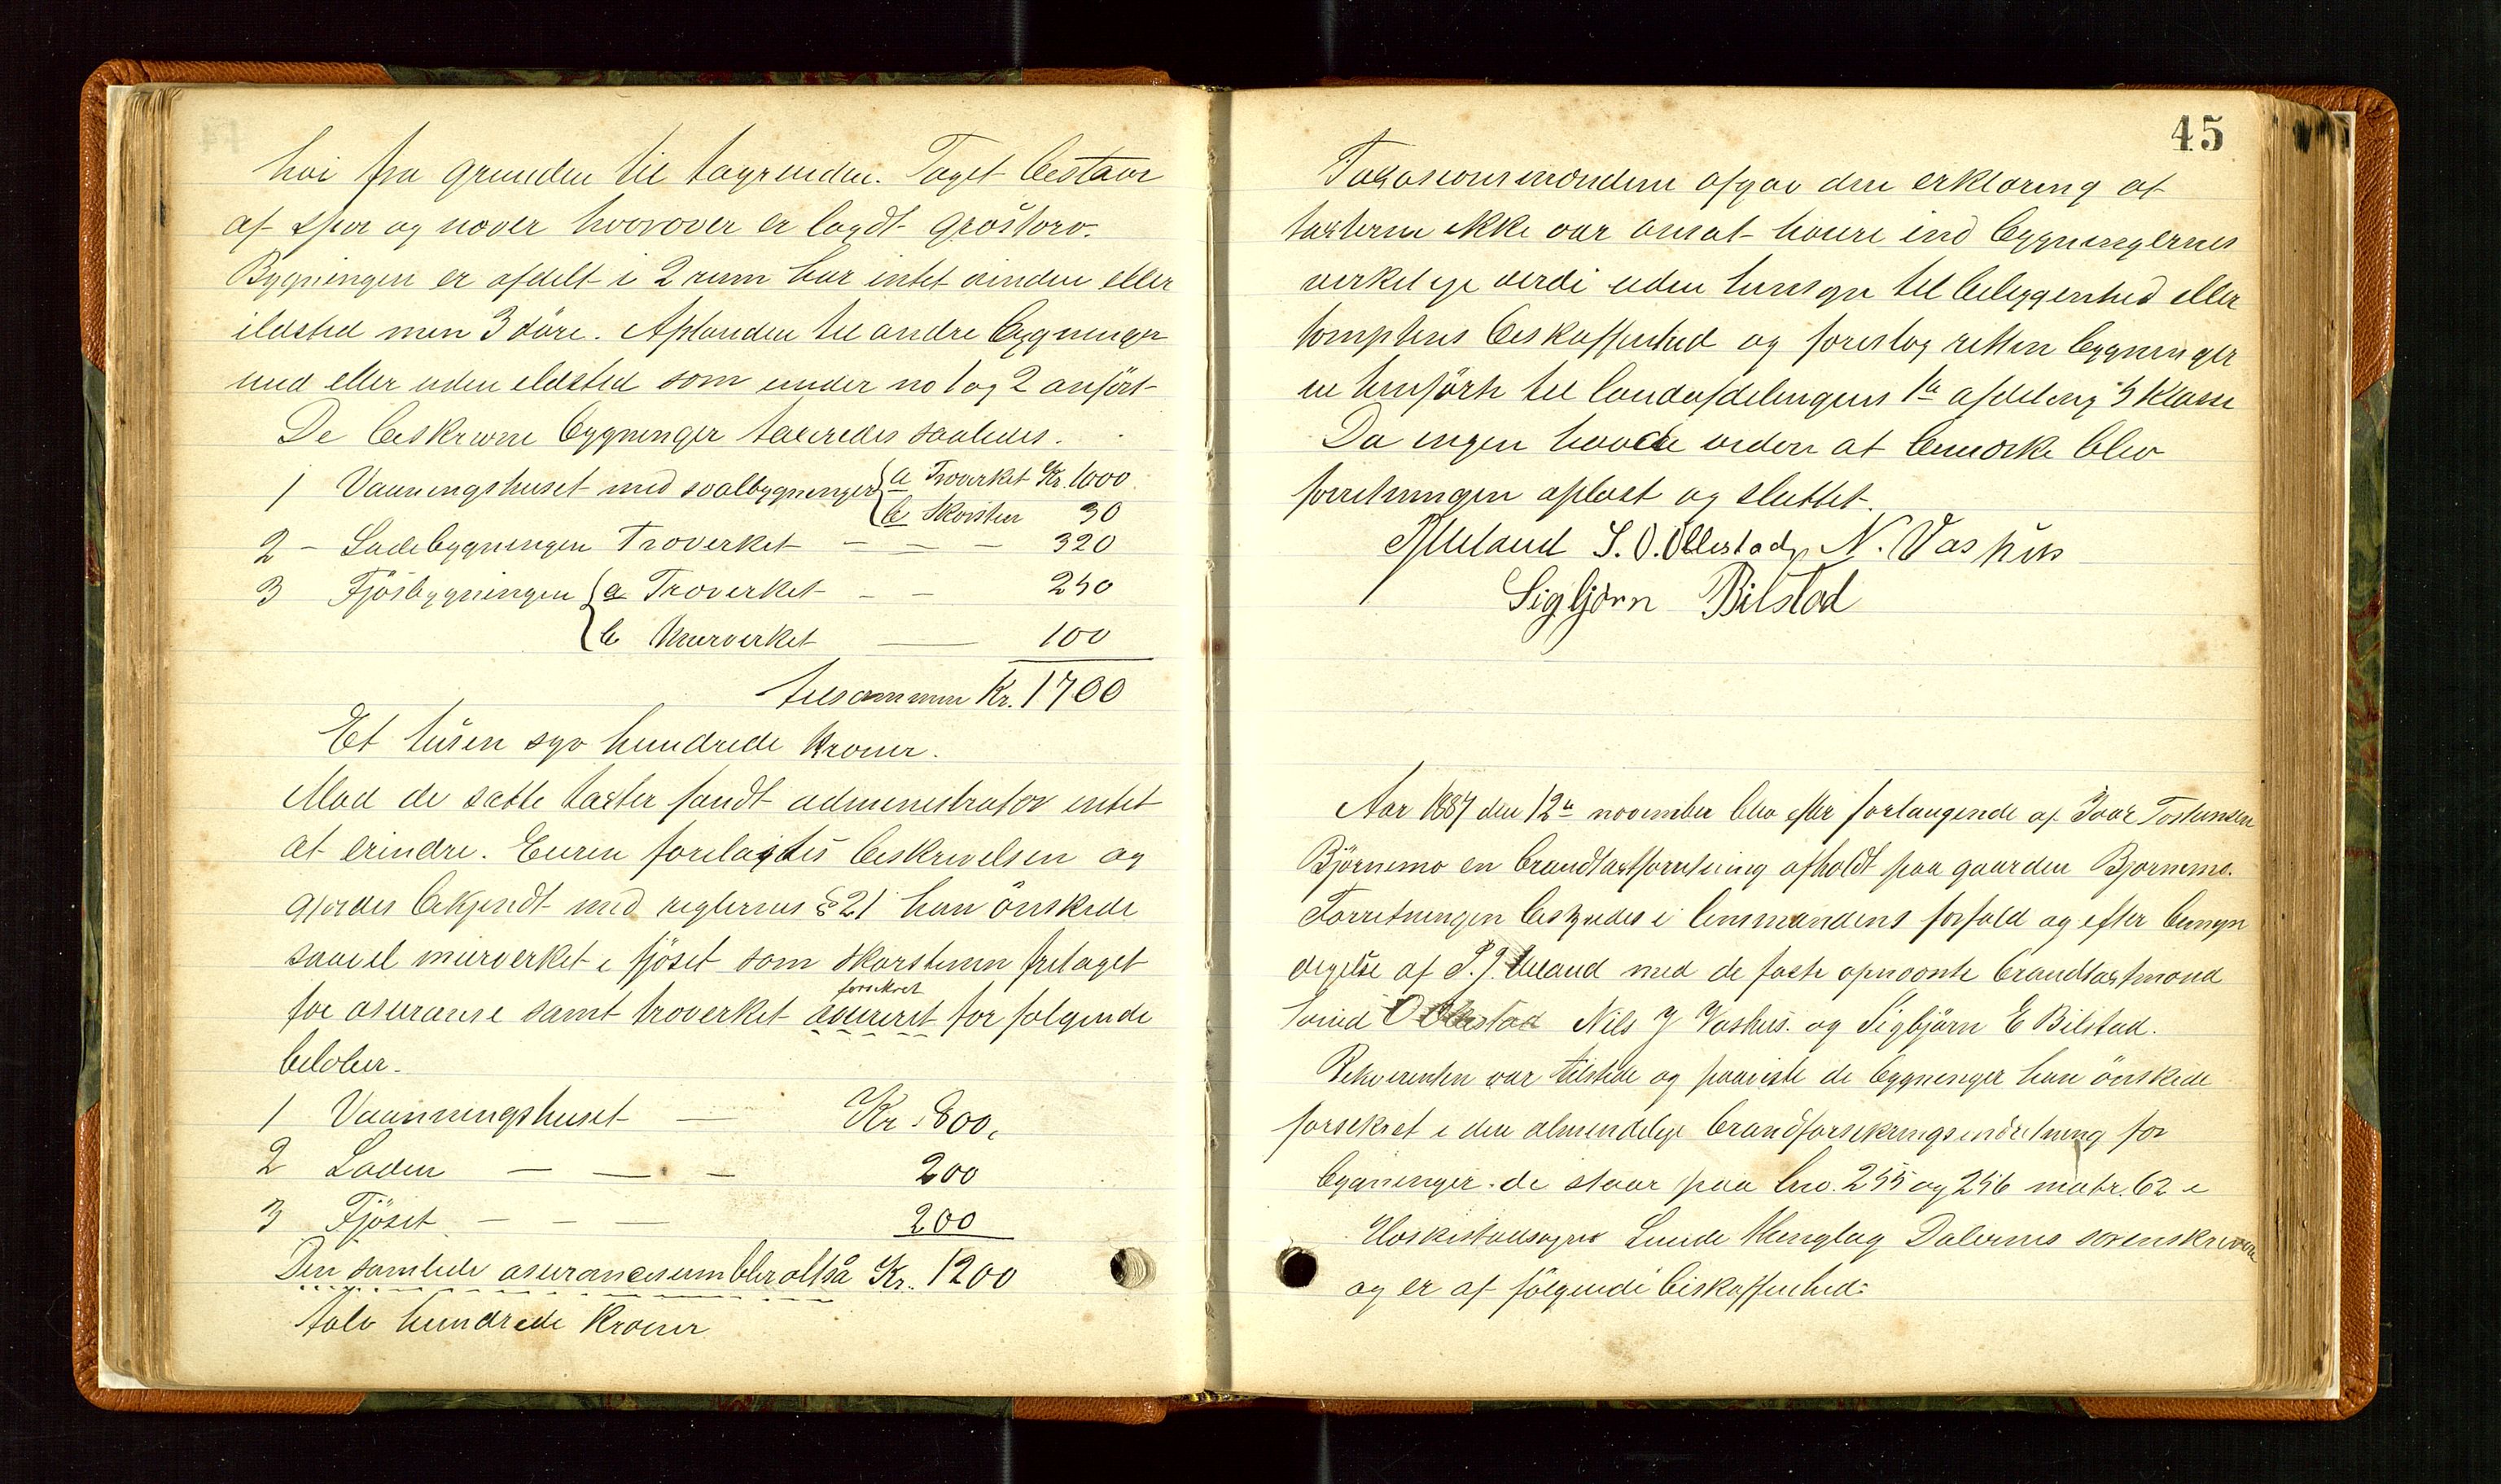 høi fra grunden til tagrenden. Taget bestaar
af sper og næver hvorover er lagdt græstorv.
Bygningen er afdelt i 2 rum har intet vindue eller
ildsted men 3 döre. Afstanden til andre bygninger
med eller uden ildsted som under no 1 og 2 anført
De beskrevne bygninger taxeredes saaledes.
1 Vaaningshuset med svalbygninger a Træverket Kr. 1000
b Skorsten 30
2 - Ladebygningen Træverket 320
3 Fjösbygningen a Træverket 250
b Murverket 100
tilsammen Kr. 1700
Et tusen syv hundrede Kroner.
Mod de satte taxter fandt administrator intet
at erindre. Eieren forelæstes beskrivelsen og
gjordes bekjendt med reglernes § 21 han önskede
saavel murverket i fjöset som skorstenen fritaget
for asuranse samt træverket asureret for følgende
forsikret
beløber.
1 Vaanningshuset Kr. 800,
2 Laden 200
3 Fjöset 200
Den samlede asurancesum blir altså Kr. 1200
tolv hundrede Kroner
45
Taxasionsmændene afgav den erklæring at
taxterne ikke var ansat høiere end bygningernes
verkelige verdi uden hensyn til beliggenhed eller
tomptens beskaffenhed og foreslog retten bygninger
ne henførte til landafdelingens 1ste afdeling 5 klasse
Da ingen havde videre at bemærke blev
forretningen oplæst og sluttet.
S. O. Ollestad, N. Vashus
Sigbjørn Bilstad
Aar 1887 den 12te november blev efter forlangende af Ivar Tostensen
Björnemo en brandtaxtforretning afholdt paa gaarden Bjørnemo.
Forretningen bestyredes i lensmandens forfald og efter bemyn
digelse af P. J. Ueland med de faste opnævnte brandtaxtmænd
Svend O Ollestad Nils J Vashus. og Sigbjörn E Bilstad.
Rekvirenten var tilstede og paaviste de bygninger han önskede
forsikret i den almindelige brandforsikringsindretning for
bygninger. de staar paa lno. 255 og 256 matr. 62 i
Heskestadsogn Lunde thinglag Dalernes sorenskriveri
og er af følgende beskaffenhed: